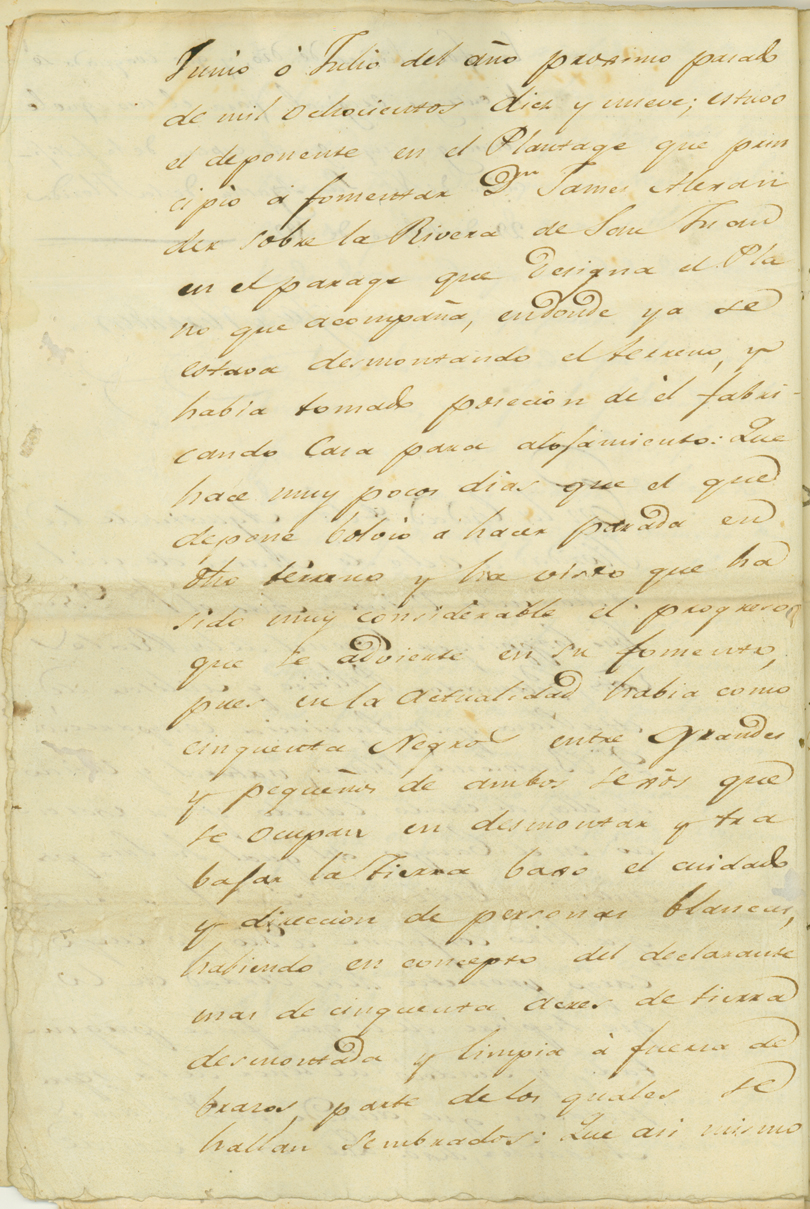 Junio ó Julio del año proximo pasado
de mil ochocientos diez y nueve; estuvo
el deponente en el Plantage que prin
cipió á fomentar Dn James Alexan
der sobre la Rivera de San Juan
en el parage que designa el Pla
no que acompaña, endonde ya se
estava desmontando el terreno, y
habia tomado posecion de el fabri-
cando Casa para alojamiento: Que
hace muy pocos dias que el que
depone bolvió a hacer parada en
dho terreno y ha visto que ha
sido muy considerable el progreso
que se advierte en su fomento,
pues en la actualidad habia como
cinquenta Negros entre Grandes
y pequeños de ambos sexôs que
se ocupan en desmontar y tra
bajar la Tierra baxo el cuidado
y direccion de personas blancas,
habiendo en concepto del declarante
mas de cinquenta acres de tierra
desmontada y limpia á fuerza de
brazos, parte de los quales se
hallan sembrados: Que asi mismo